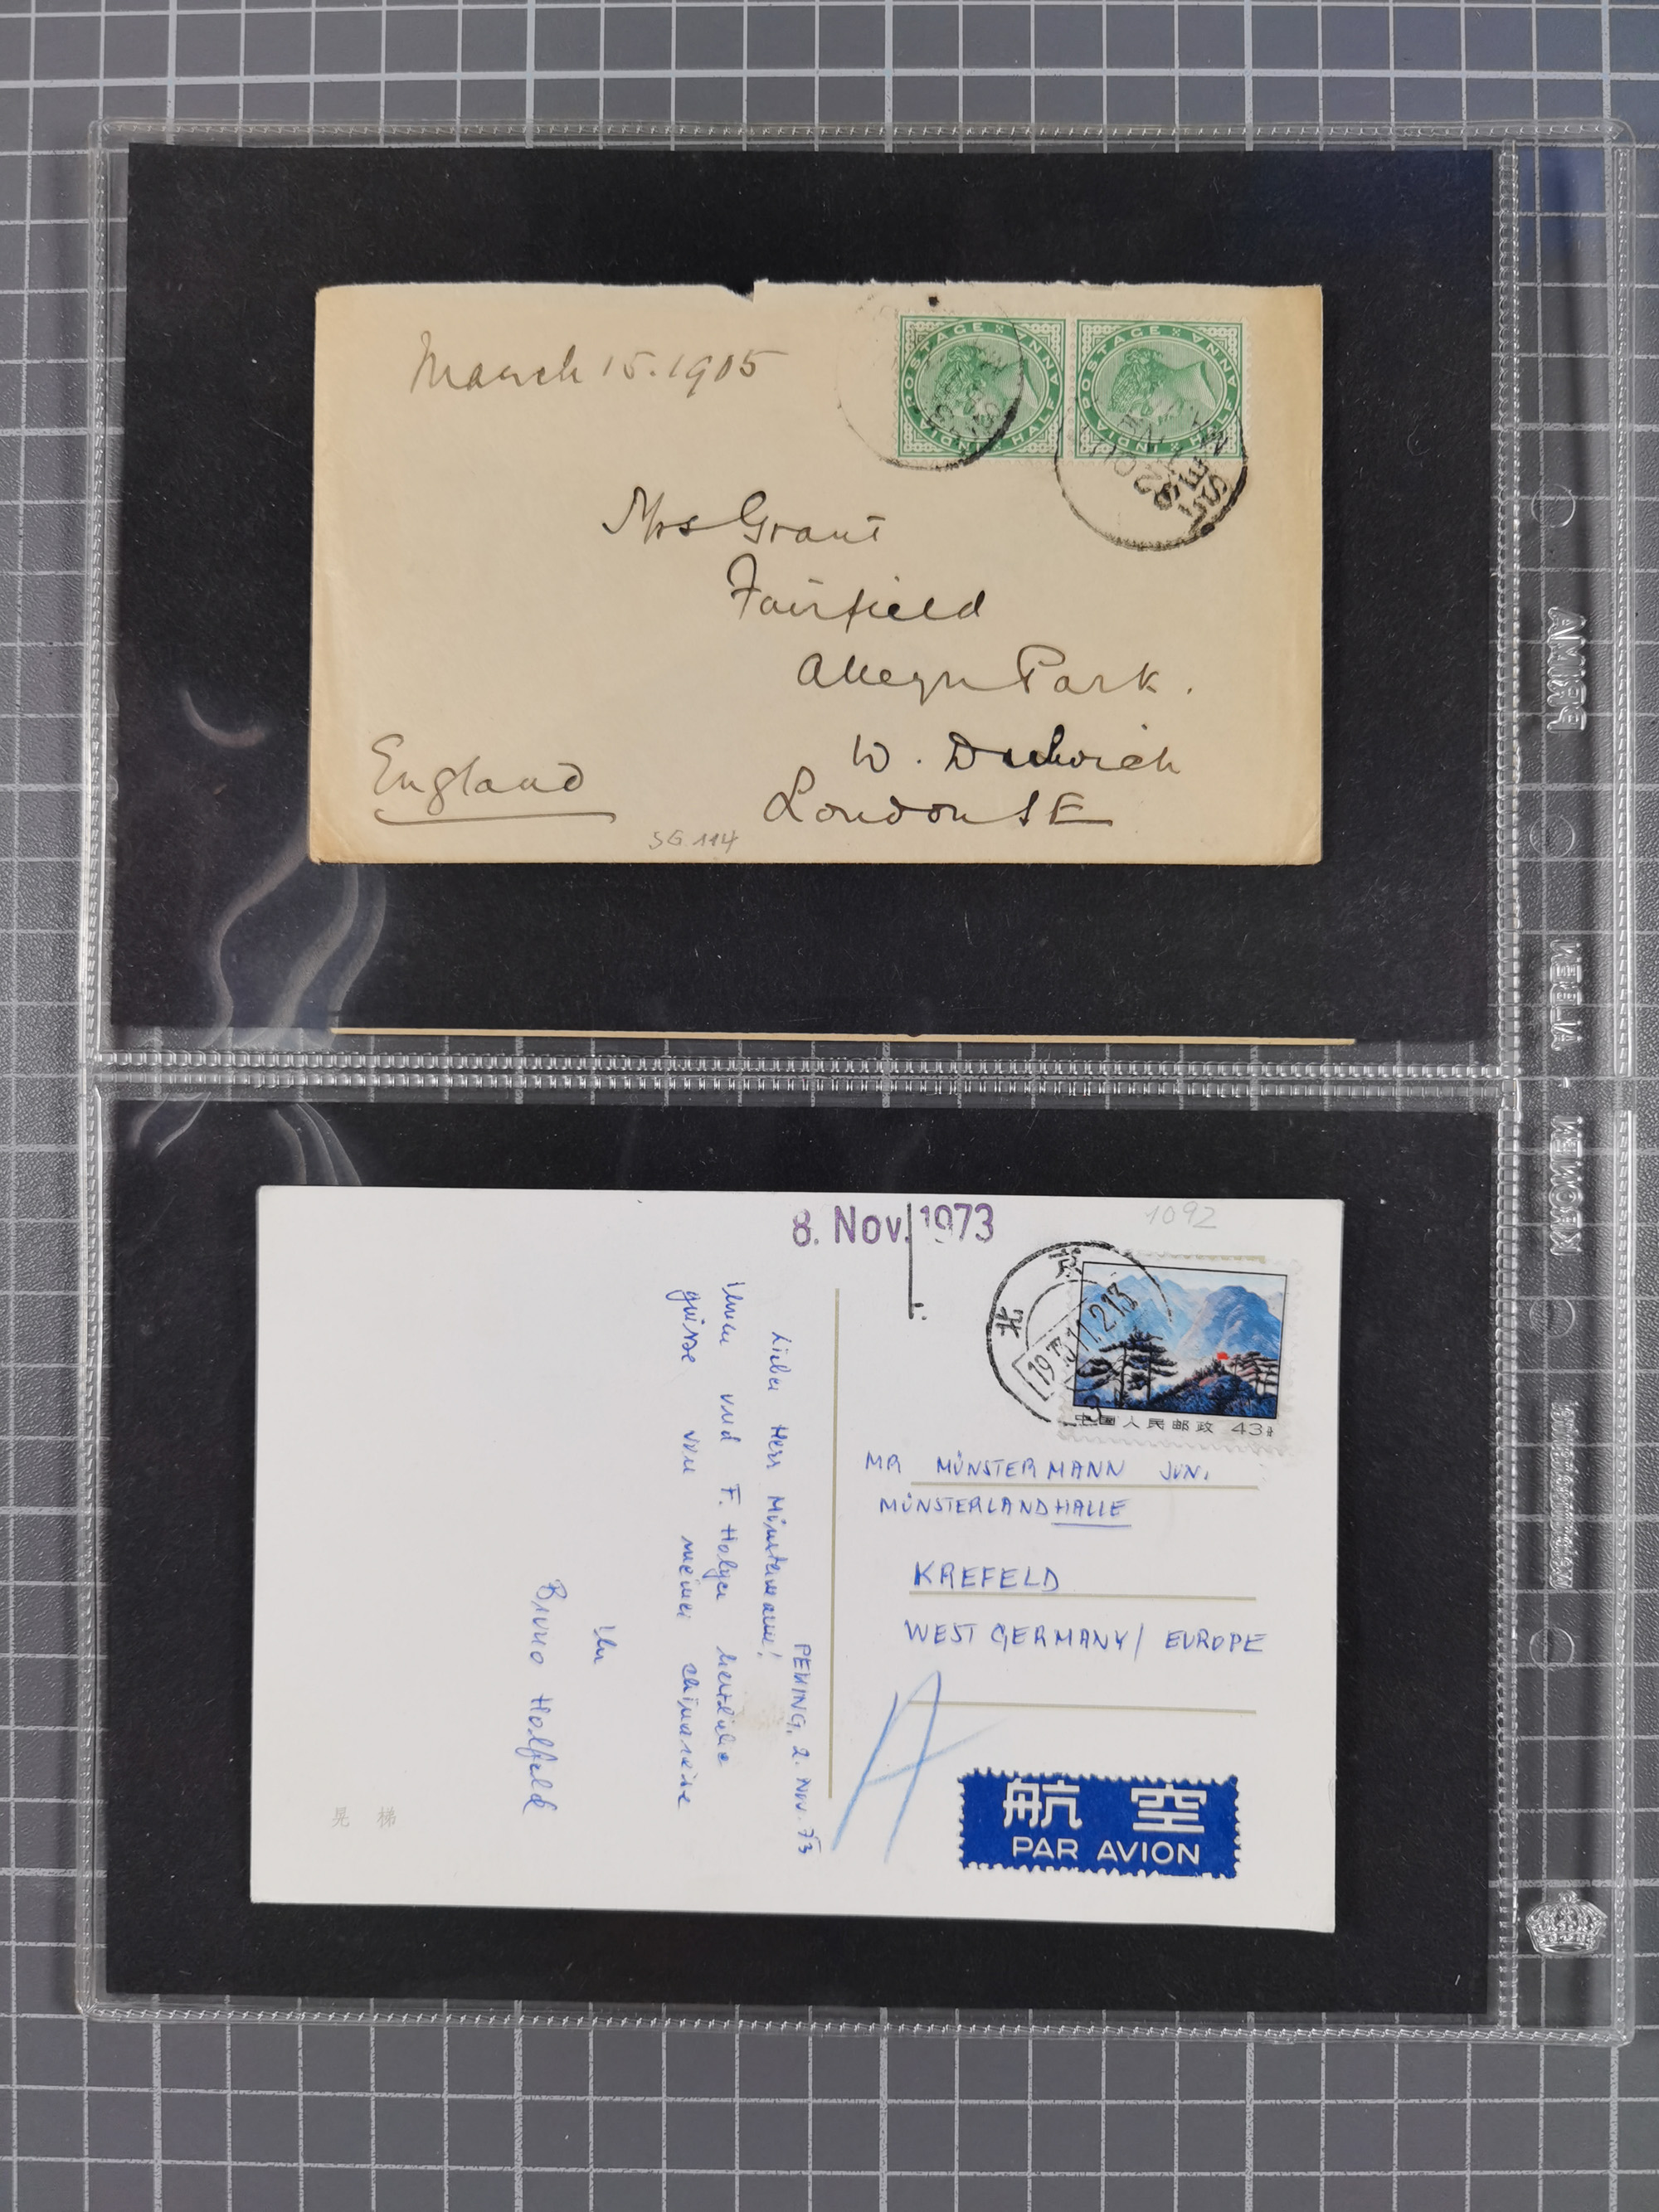 March 15.1905
INDIA POSTAGE
HALF ANNA
INDIA POSTAGE
HALF ANNA
Mrs Grant
Fairfield
Alleyn Park.
W. Dulwich
London SE
England
SG 114
8. Nov. 1973
1092
北 京
中国人民邮政 43分
MR MÜNSTERMANN JUN.
MÜNSTERLANDHALLE
KREFELD
WEST GERMANY / EUROPE
A
航 空
PAR AVION
PEKING, 2. Nov. 73
Lieber Herr Münstermann!
Ihnen und F. Holger herzliche
grüsse von meiner chinareise
Ihr
Bruno Holfeld
晃 梯
PRIMA
KEELIA · KEWORK